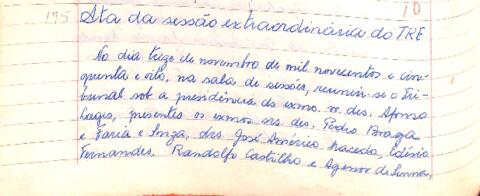 195 10
Ata da sessão extraordinária do TRE
No dia treze de novembro de mil novecentos e cin-
quenta e oito, na sala de sessões, reuniu-se o Tri-
bunal sob a presidência do exmo. sr. des. Afonso
Lages, presentes os exmos. srs. des. Pedro Braga
e Faria e Souza, drs. José Américo Macedo, Edésio
Fernandes, Randolfo Castilho e Agenor de Senna,